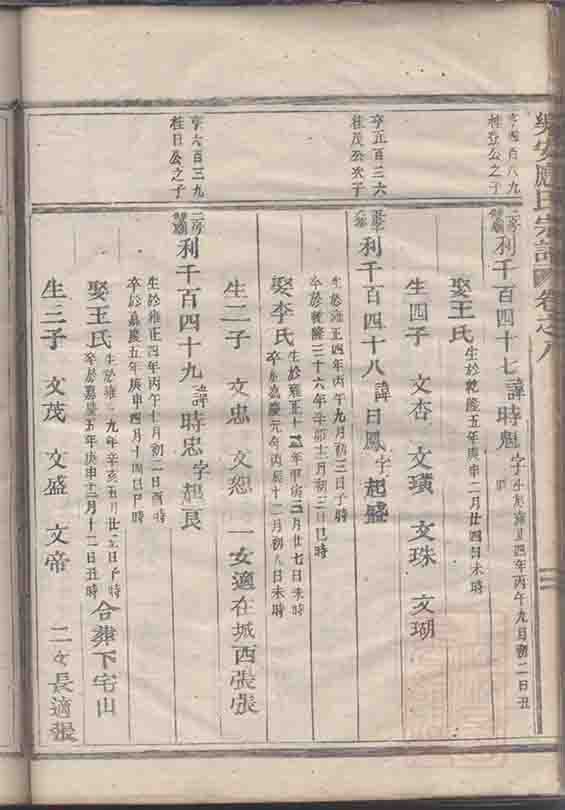 應氏宗譜 卷之八
亨四百八九
桂登公之子
利千百四十七 諱時魁 字
生於雍正四年丙午九月初二日丑時
娶王氏 生於乾隆五年庚申二月廿四日未時
生四子 文杏 文璜 文珠 文瑚
亨五百三六
桂茂公次子
利千百四十八 諱日鳳 字起盛
生於雍正四年丙午九月初三日子時
卒於乾隆三十六年辛卯十二月初三日巳時
娶李氏 生於雍正十二年甲寅三月廿七日未時
卒於嘉慶元年丙辰十二月初八日未時
生二子 文忠 文恕 一女適在城西張張
亨六百三九
桂日公之子
利千百四十九 諱時忠 字起良
生於雍正四年丙午七月初二日酉時
卒於嘉慶五年庚申四月十四日巳時
娶王氏 生於雍 九年辛亥五月廿五日子時
卒於嘉慶五年庚申十二月十二日丑時 合葬下宅山
生三子 文茂 文盛 文帝 二女長適張